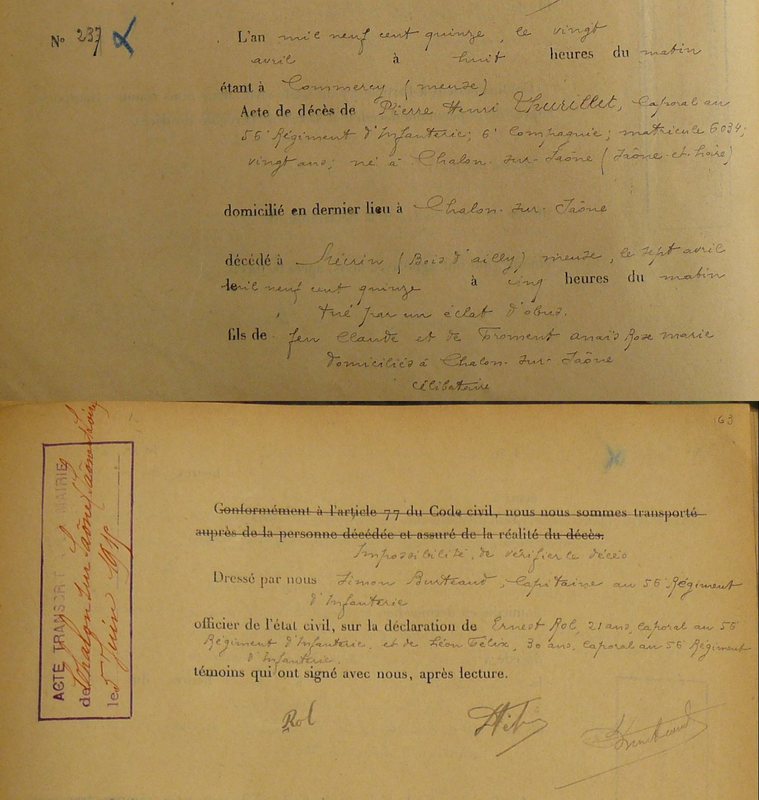 N° 237
L'an mil neuf cent quinze, le vingt
avril à huit heures du matin
étant à Commercy (meuse)
Acte de décès de Pierre Henri Thurillet, Caporal au
56e Régiment d'Infanterie; 6e Compagnie; matricule 6034;
vingt ans; né à Chalon-sur-Saône (Saône-et-Loire)
domicilié en dernier lieu à Chalon-sur-Saône
décédé à Mécrin (Bois d'ailly) meuse, le sept avril
le mil neuf cent quinze à cinq heures du matin
tué par un éclat d'obus.
fils de feu Claude et de Froment anaïs Rose marie
domiciliés à Chalon-sur-Saône
Célibataire
163
Conformément à l'article 77 du Code civil, nous nous sommes transporté
auprès de la personne décédée et assuré de la réalité du décès.
Impossibilité de vérifier le décès
Dressé par nous Simon, Capitaine au 56e Régiment
d'Infanterie
officier de l'état civil, sur la déclaration de Ernest Rol, 21 ans, Caporal au 56e
Régiment d'Infanterie, et de Léon Félix, 30 ans, Caporal au 56e Régiment
d'Infanterie.
témoins qui ont signé avec nous, après lecture.
Rol
ACTE TRANSCRIT MAIRIE
de Chalon sur Saône (Saône-et-Loire)
le 5 Juin 1915